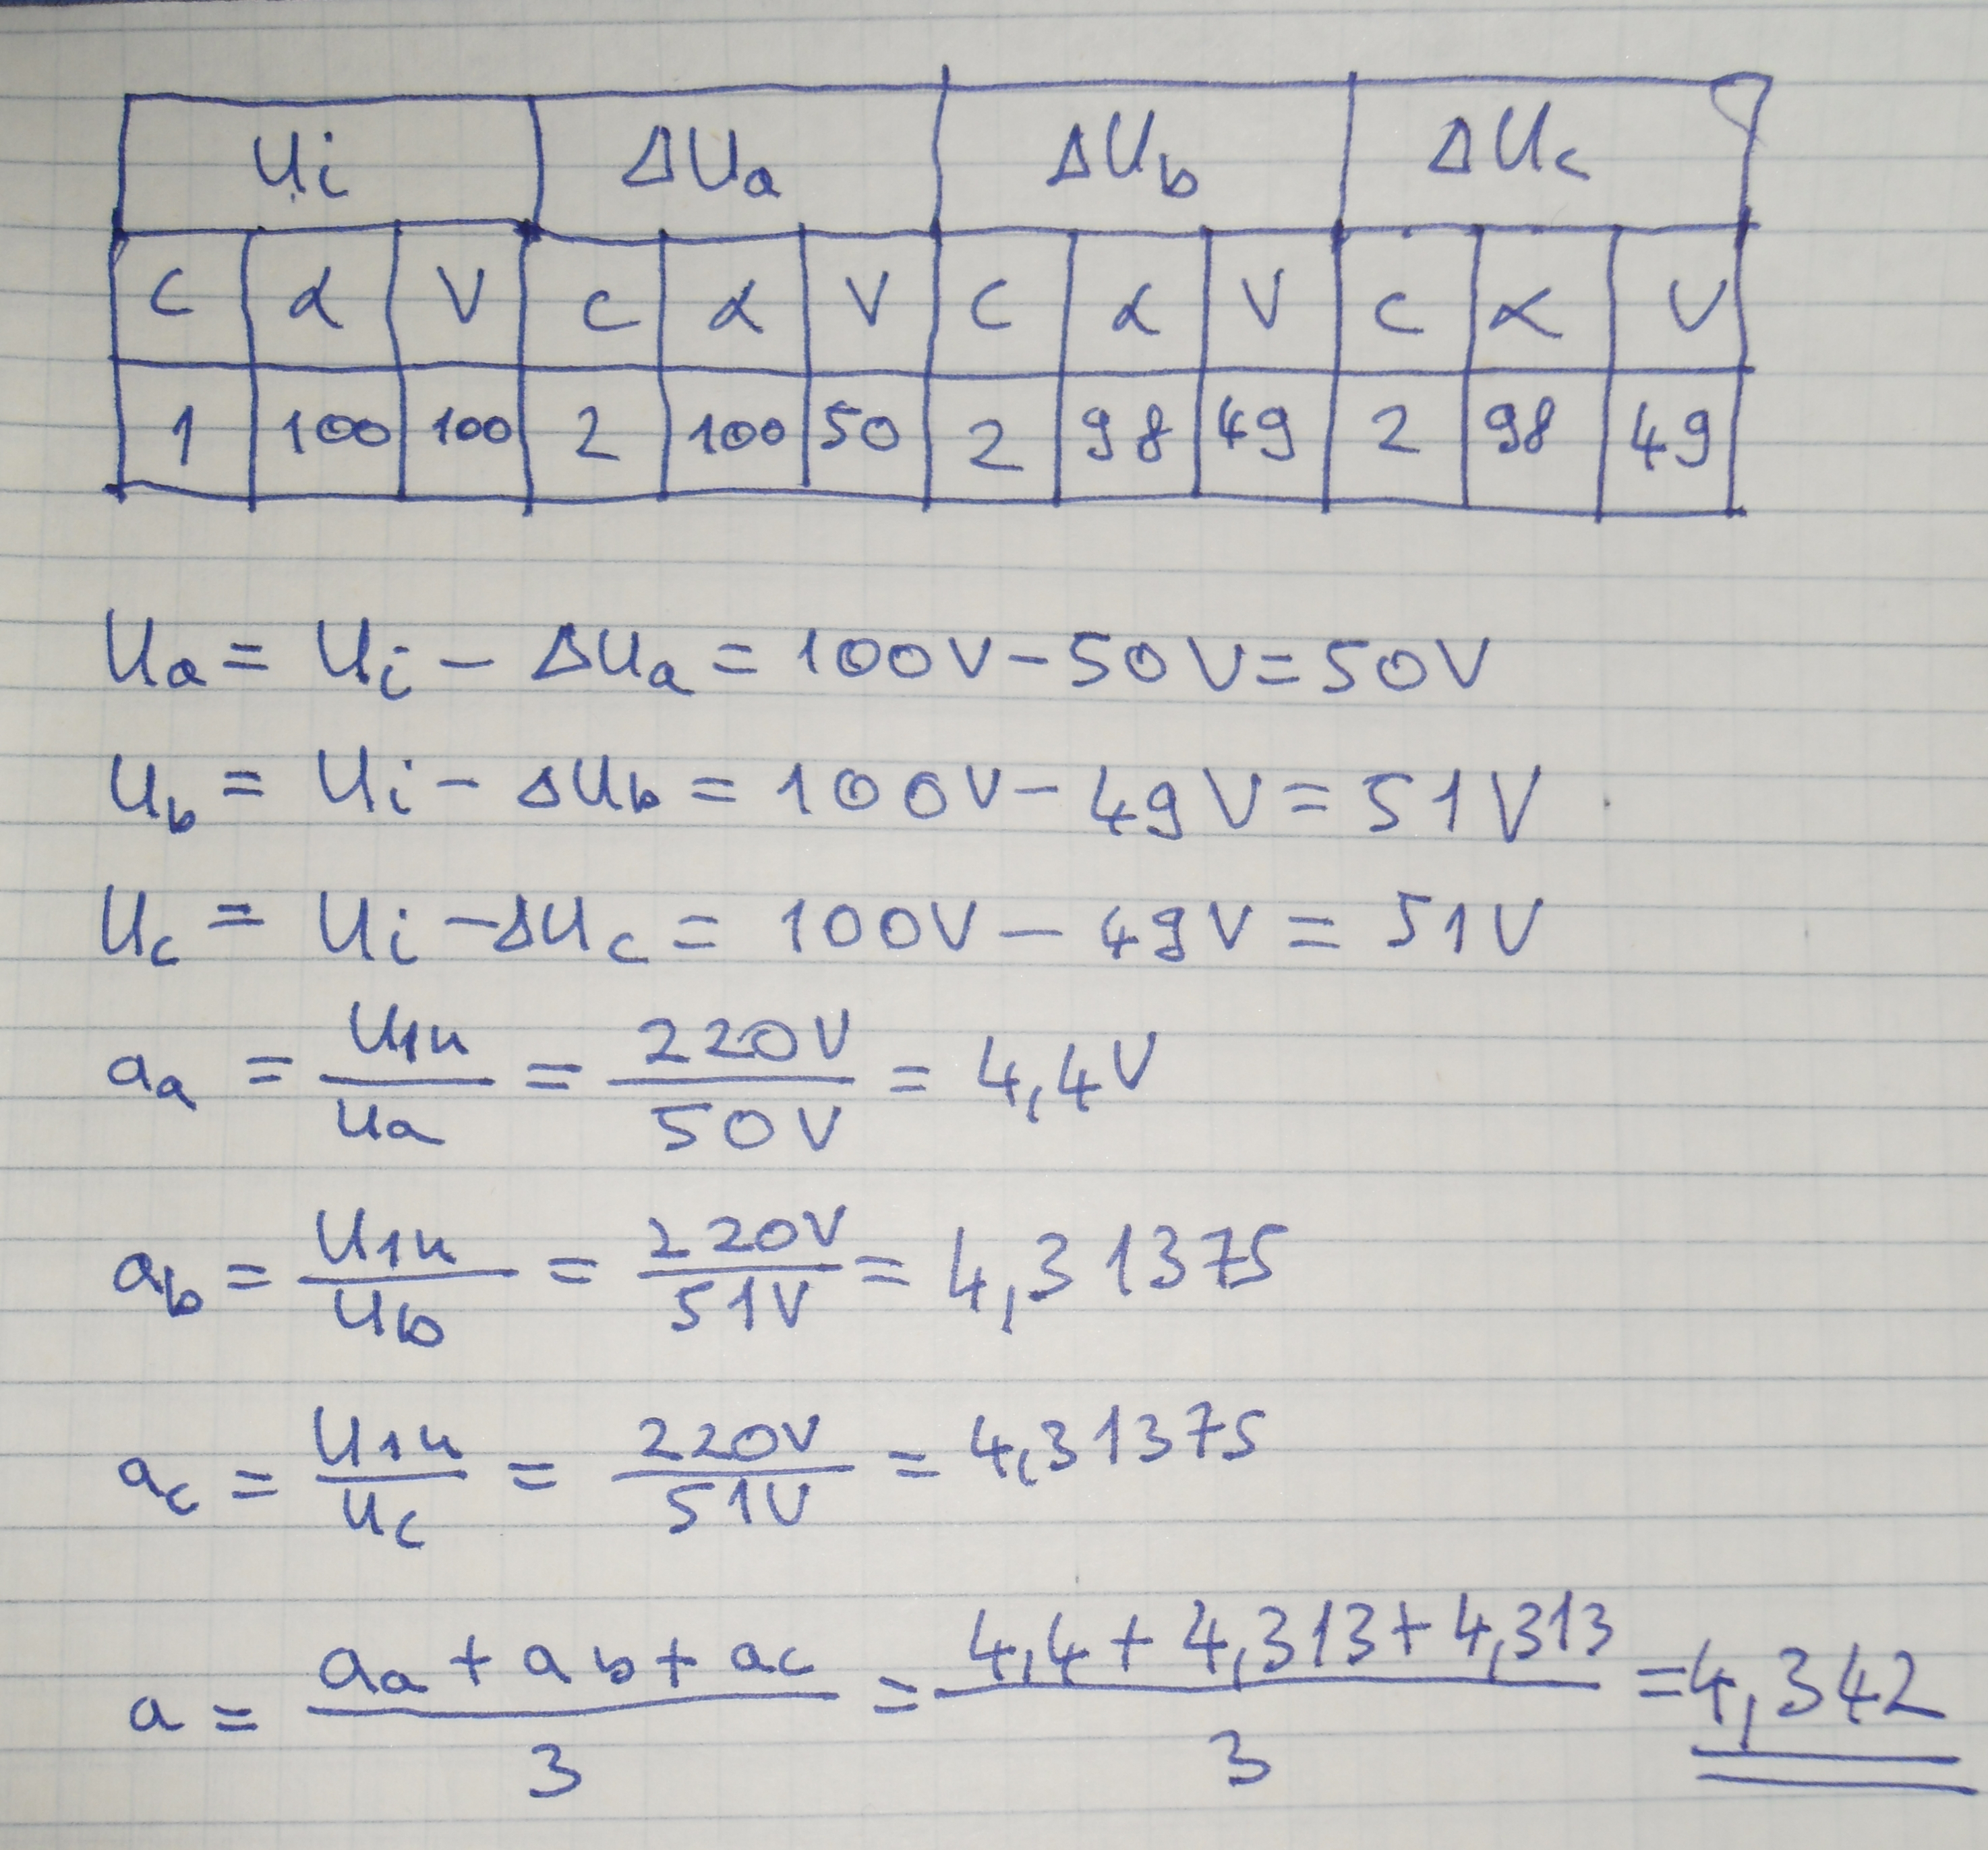 Ui ΔUa ΔUb ΔUc
C α V C α V C α V C α V
1 100 100 2 100 50 2 98 49 2 98 49
Ua = Ui - ΔUa = 100V - 50V = 50V
Ub = Ui - ΔUb = 100V - 49V = 51V
Uc = Ui - ΔUc = 100V - 49V = 51V
aa = U1n / Ua = 220V / 50V = 4,4V
ab = U1n / Ub = 220V / 51V = 4,31375
ac = U1n / Uc = 220V / 51V = 4,31375
a = aa + ab + ac / 3 = 4,4 + 4,313 + 4,313 / 3 = 4,342